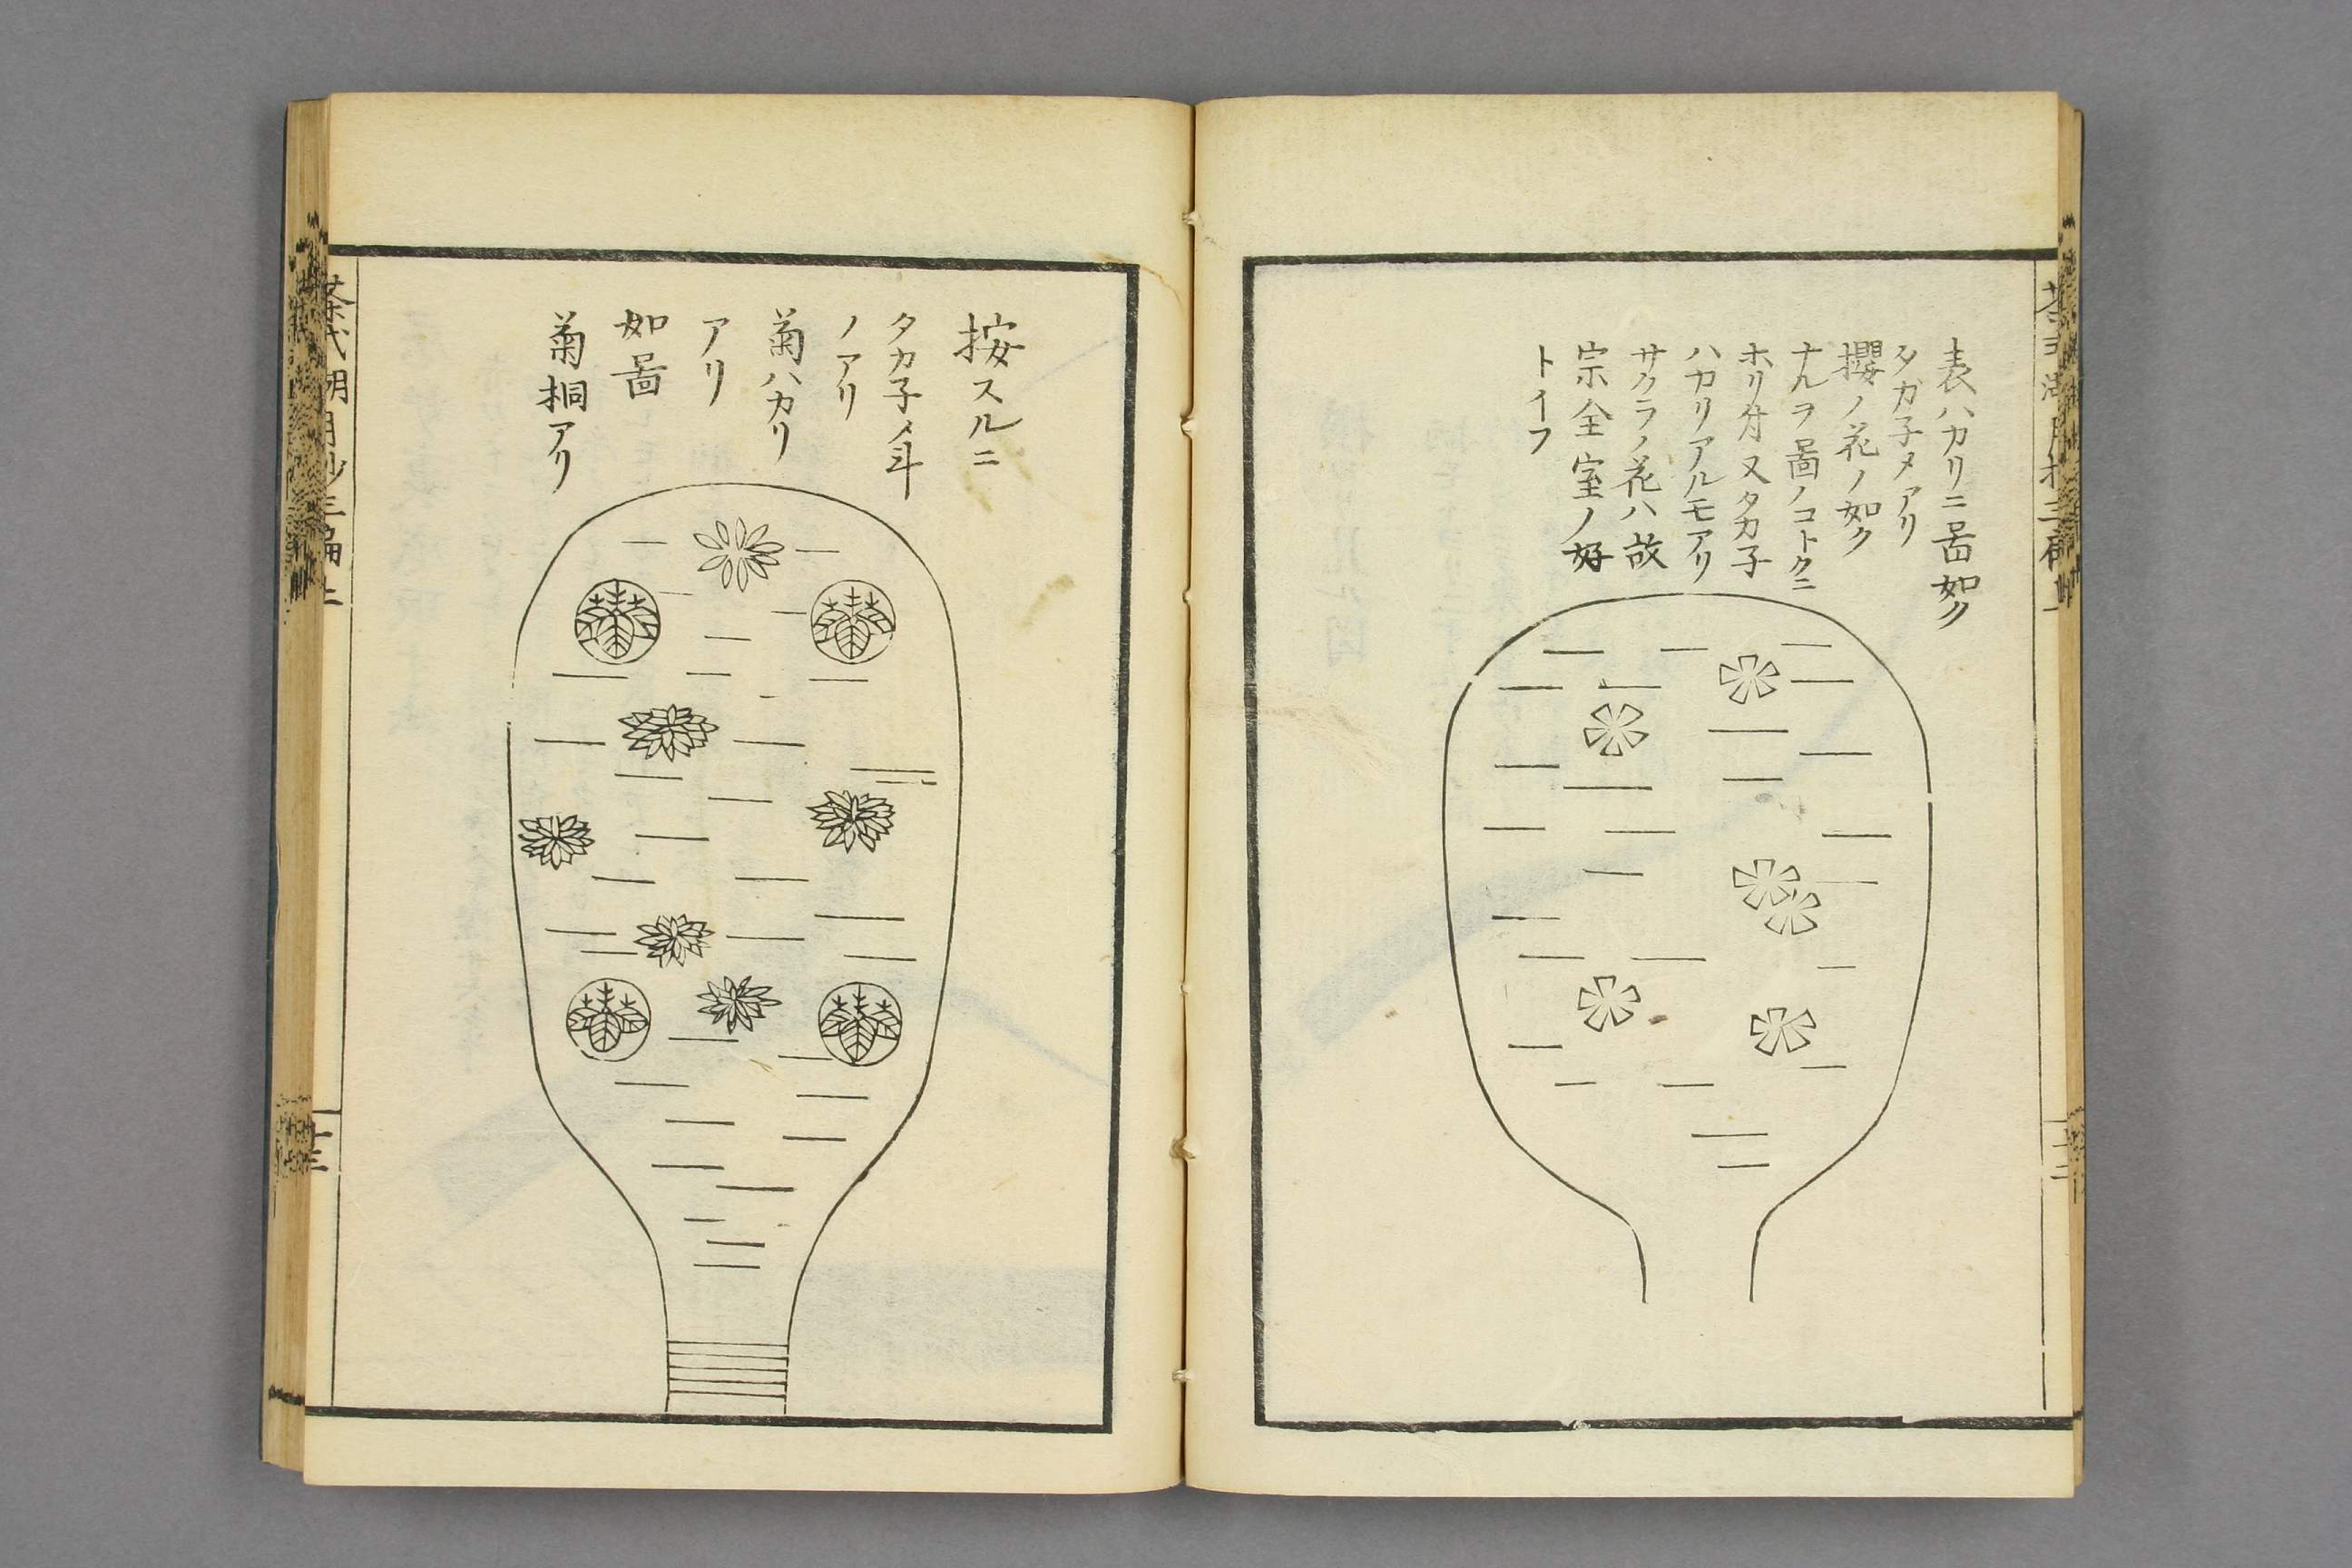 表ハカリニ啚如ク
タガ子メアリ
櫻ノ花ノ如ク
ナルヲ啚ノコトクニ
ホリ付又タカ子
ハカリアルモアリ
サクラノ花ハ故
宗全室ノ好
トイフ
按スルニ
タカ子メ斗
ノアリ
菊ハカリ
アリ
如啚
菊桐アリ